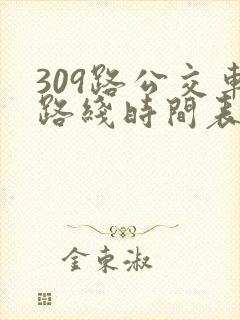 309路公交車
路綫時間表
金東淑